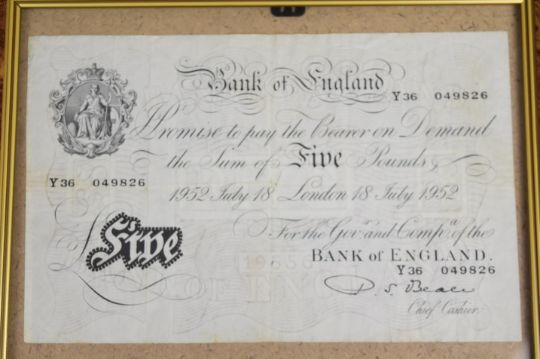 Bank of England
Y36 049826
Promise to pay the Bearer on Demand
the Sum of Five Pounds
Y36 049826
1952 July 18 London 18 July 1952
For the Govr. and Compa. of the
BANK OF ENGLAND.
Y36 049826
£Five
P. S. Beale
Chief Cashier.